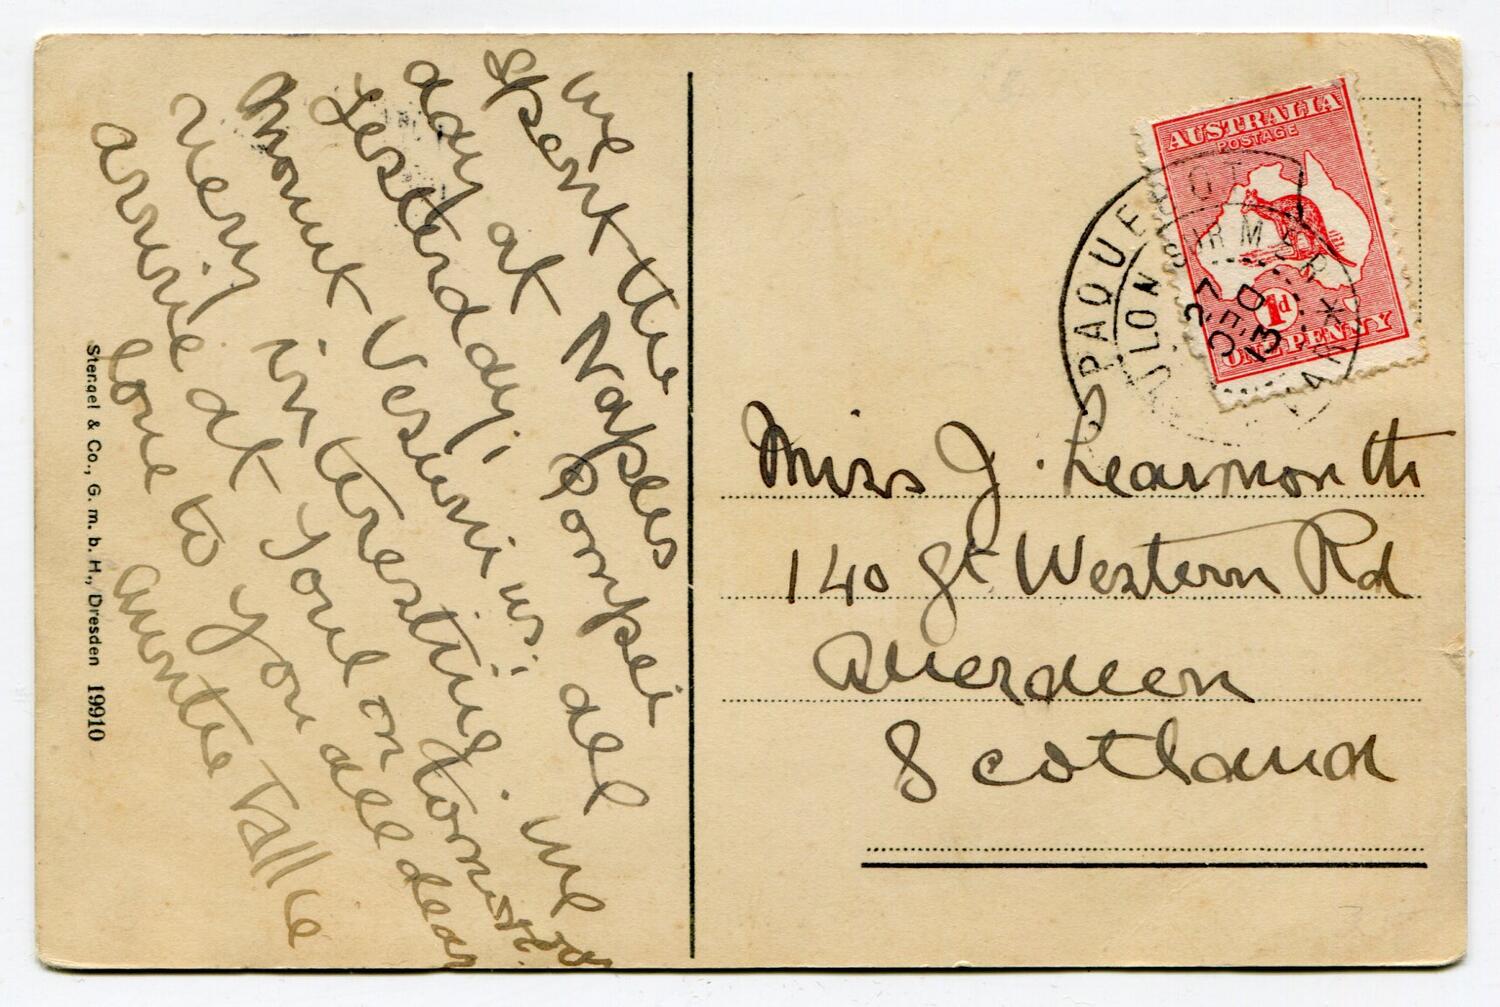 we
spent the
day at Naples
yesterday; Pompei
Mount Vesuvius; all
very interesting. we
arrive at Toulon tomorrow.
love to you all dear
auntie Tallie
Stengel & Co., G. m. b. H., Dresden 19910
AUSTRALIA
POSTAGE
1d
ONE PENNY
PAQUEBOT
27
DEC
13
Miss J. Learmonth
140 Gt Western Rd
Aberdeen
Scotland